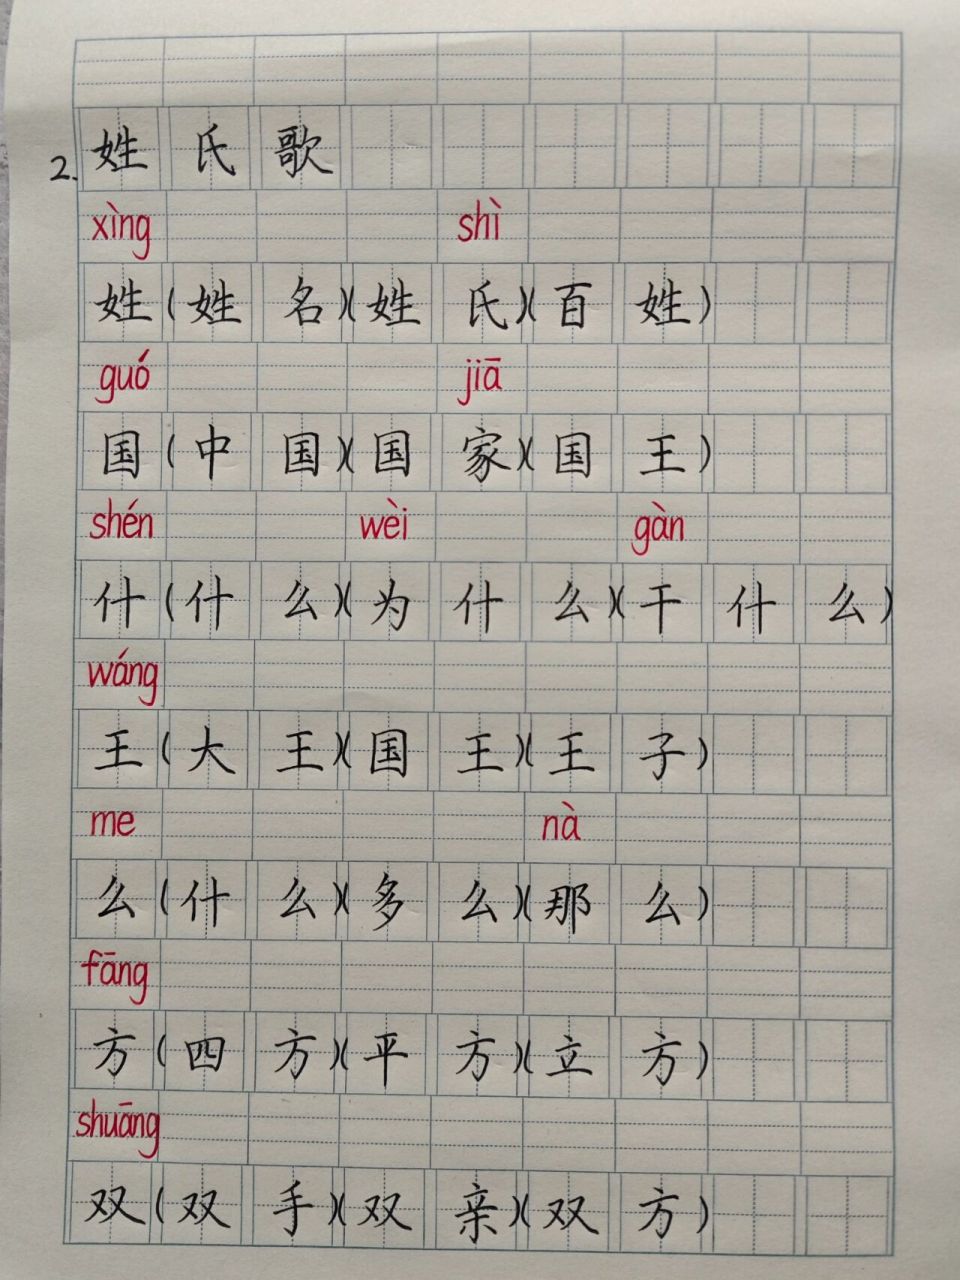 2. 姓氏歌
xìng shì
姓(姓名)(姓氏)(百姓)
guó jiā
国(中国)(国家)(国王)
shén wèi gàn
什(什么)(为什么)(干什么)
wáng
王(大王)(国王)(王子)
me nà
么(什么)(多么)(那么)
fāng
方(四方)(平方)(立方)
shuāng
双(双手)(双亲)(双方)